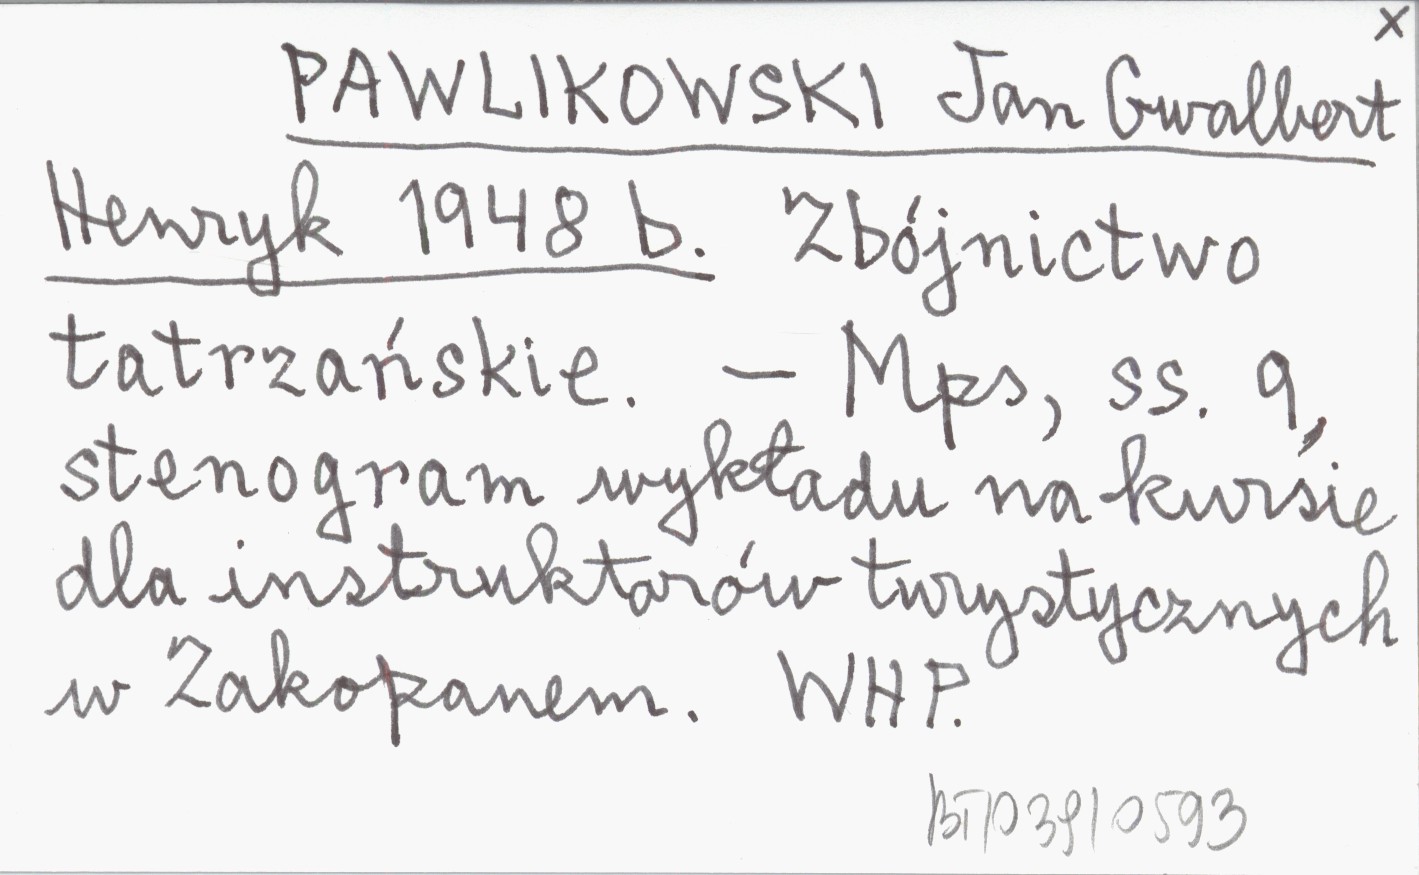 x
PAWLIKOWSKI Jan Gwalbert
Henryk 1948 b. Zbójnictwo
tatrzańskie. — Mps, ss. 9,
stenogram wykładu na kursie
dla instruktorów turystycznych
w Zakopanem. WHP.
BT/039/0593